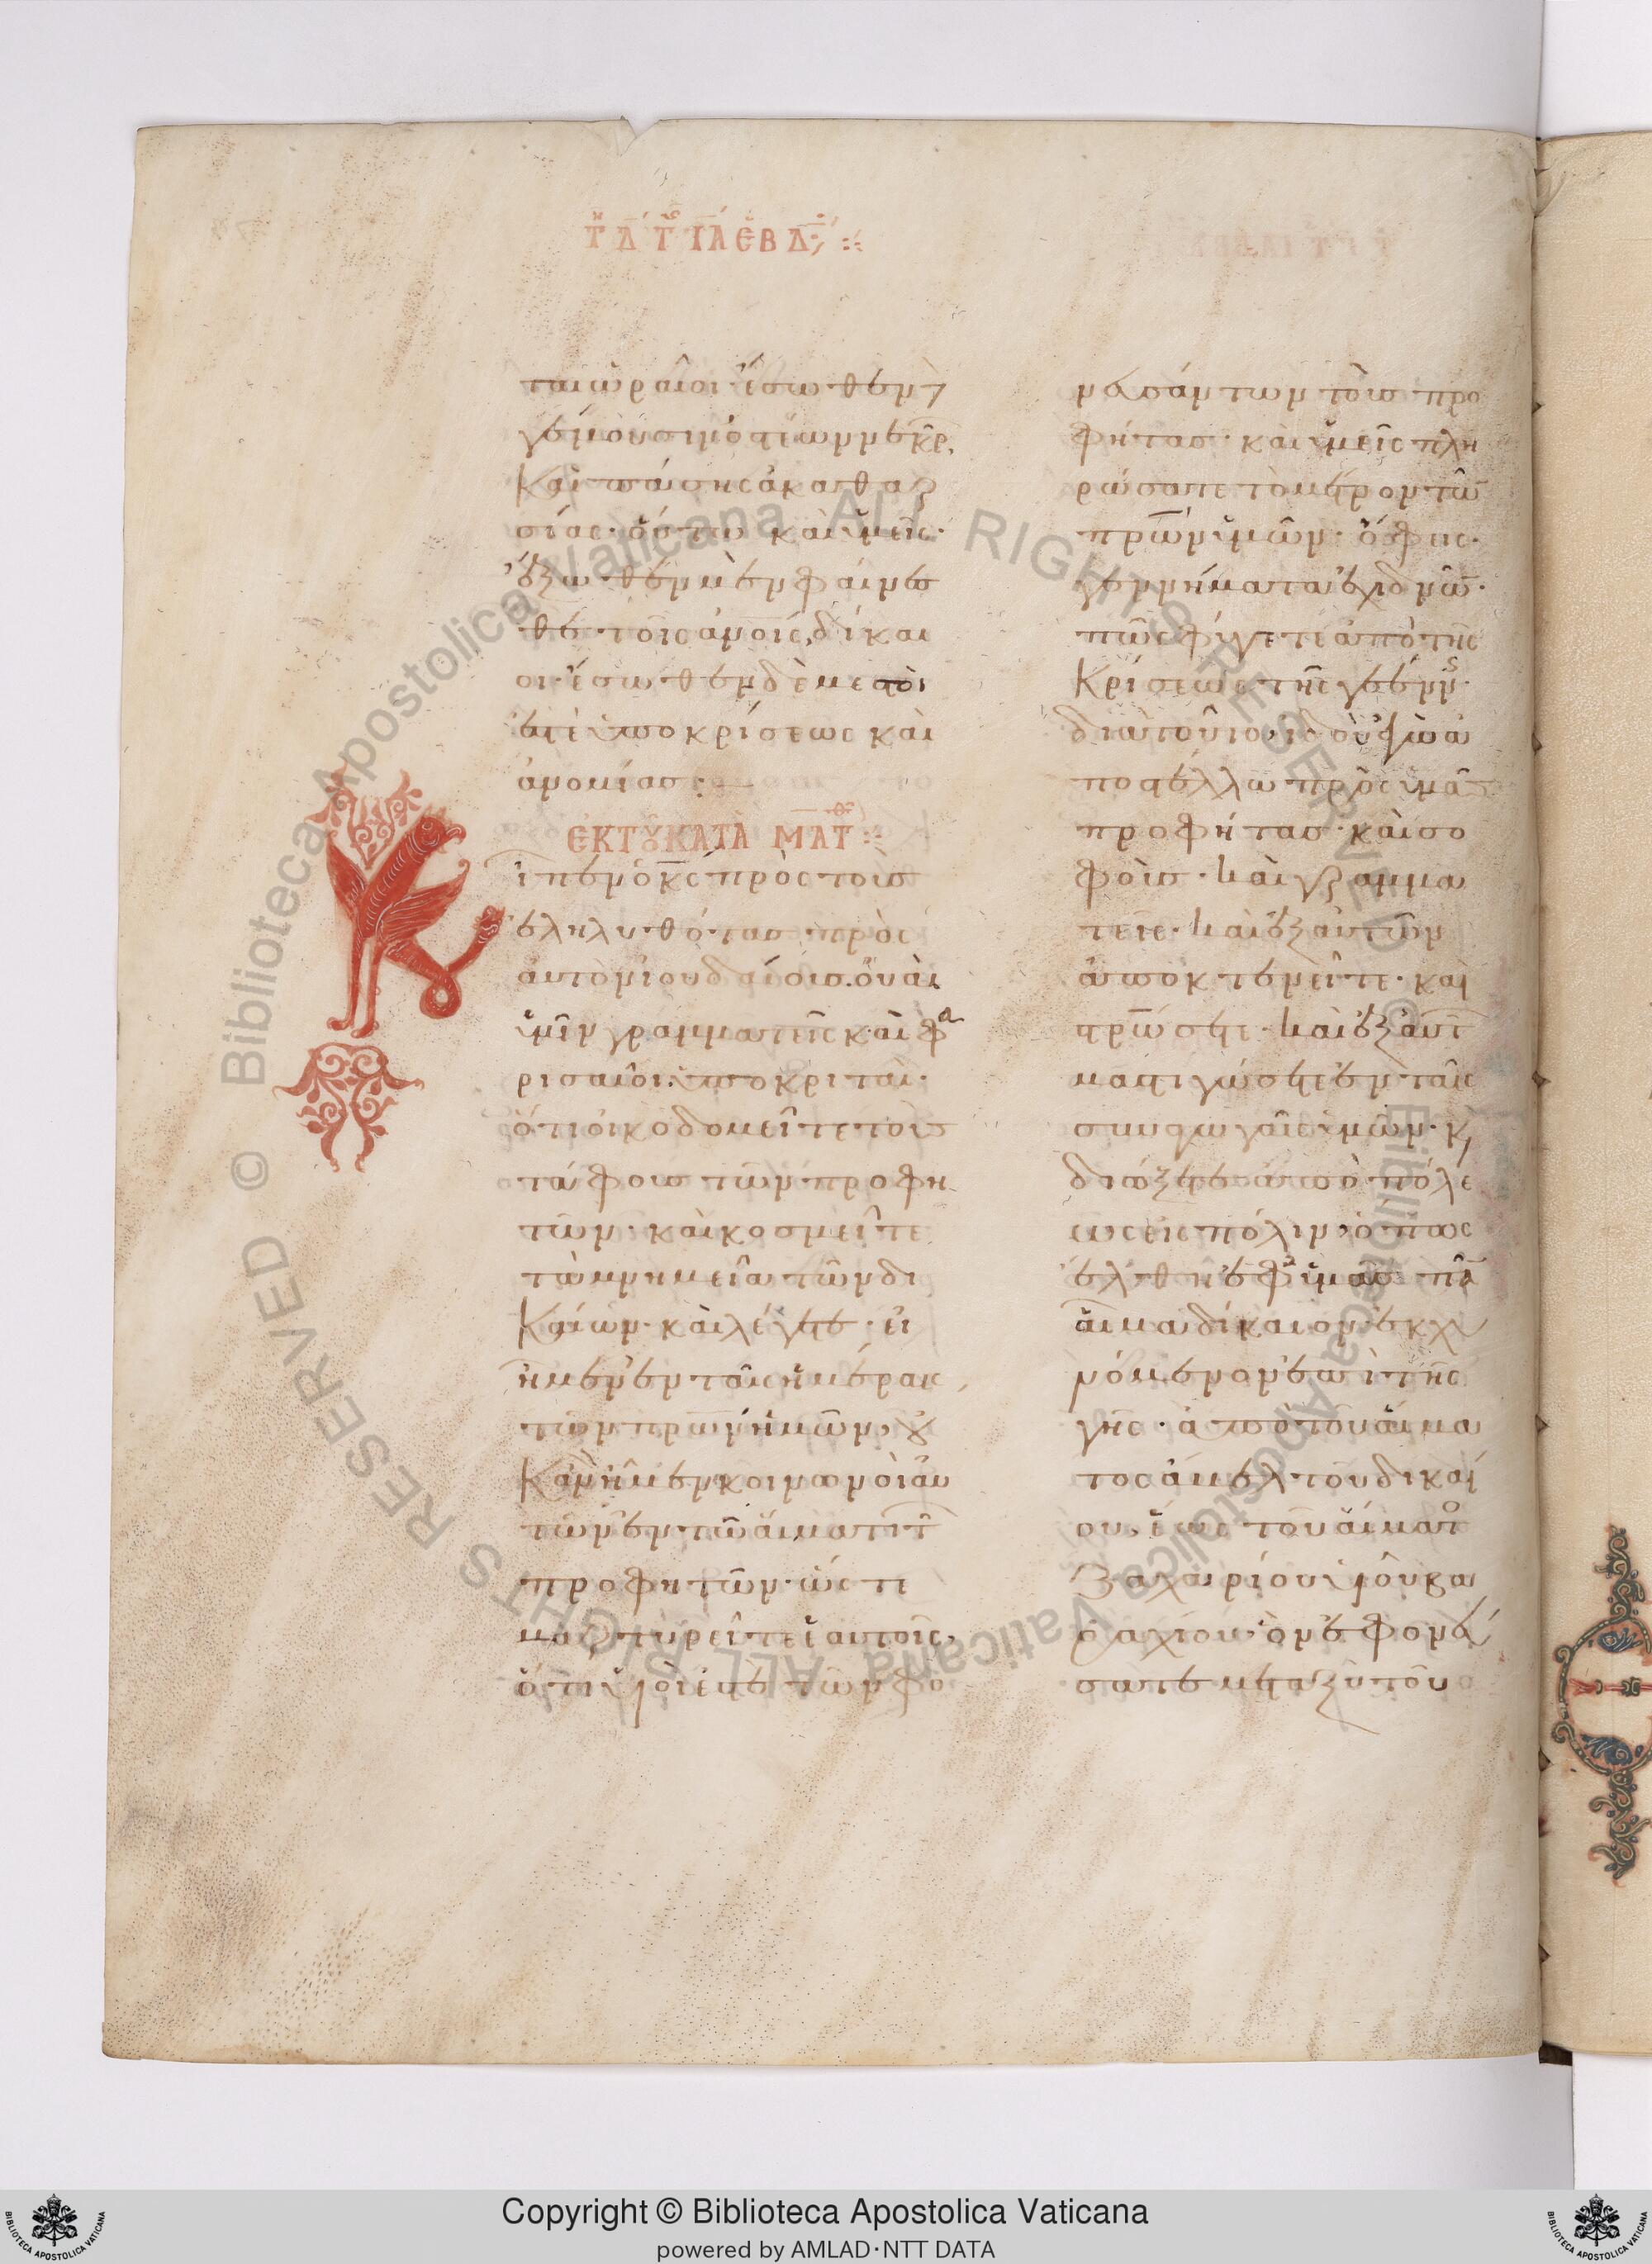 Τῌ Δ Τῆς ΙΔ ΕΒΔ
ται ὡραῖοι· ἔσωθεν δὲ
γέμουσιν ὀστέων νεκρ
καὶ πάσης ἀκαθαρ
σίας· οὕτω καὶ ὑμεῖς·
ἔξωθεν μὲν φαίνεσ
θε τοῖς ἀνοῖς δίκαι
οι· ἔσωθεν δὲ μεστοί
ἐστε ὑποκρίσεως καὶ
ἀνομίας·
ἐκ τοῦ ΚΑΤᾺ ΜΑΤΘ
ἶπεν ὁ κς πρὸς τοὺς
ἐληλυθότας πρὸς
αὐτὸν ἰουδαίους· οὐαὶ
ὑμῖν γραμματεῖς καὶ φα
ρισαῖοι ὑποκριταί·
ὅτι οἰκοδομεῖτε τοὺς
τάφους τῶν προφη
τῶν· καὶ κοσμεῖτε
τὰ μνημεῖα τῶν δι
καίων· καὶ λέγετε· εἰ
ἦμεν ἐν ταῖς ἡμέραις
τῶν πρων ἡμῶν, οὐ
κἂν ἦμεν κοινωνοὶ αὐ
τῶν ἐν τῶ αἵματι τ
προφητῶν· ὥστε
μαρτυρεῖτε ἑαυτοῖς,
ὅτι υἱοί ἐστε τῶν φο
νευσάντων τοὺς προ
φήτας· καὶ ὑμεῖς πλη
ρώσατε τὸ μέτρον τῶ
πρων ὑμῶν· ὄφεις·
γεννήματα ἐχιδνῶ·
πῶς φύγετε ἀπὸ τῆς
κρίσεως τῆς γεέννης·
διὰ τοῦτο, ἰδοὺ ἐγὼ ἀ
ποστέλλω πρὸς ὑμᾶς
προφήτας· καὶ σο
φούς· καὶ γραμμα
τεῖς· καὶ ἐξ αὐτῶν
ἀποκτενεῖτε· καὶ
στρώσετε· καὶ ἐξ αὐτ
μαστιγώσετε ἐν ταῖς
συναγωγαῖς ὑμῶν· κ
διώξετε ἀπὸ πόλε
ως εἰς πόλιν, ὅπως
ἔλθη ἐφ' ὑμᾶς πᾶ
αἷμα δίκαιον ἐκχυ
νόμενον ἐπὶ τῆς
γῆς· ἀπὸ τοῦ αἵμα
τος ἄβελ τοῦ δικαί
ου, ἕως τοῦ αἵματο
ζαχαρίου υἱοῦ βα
ραχίου· ὃν ἐφονεύ
σατε μεταξὺ τοῦ
Copyright © Biblioteca Apostolica Vaticana
powered by AMLAD·NTT DATA